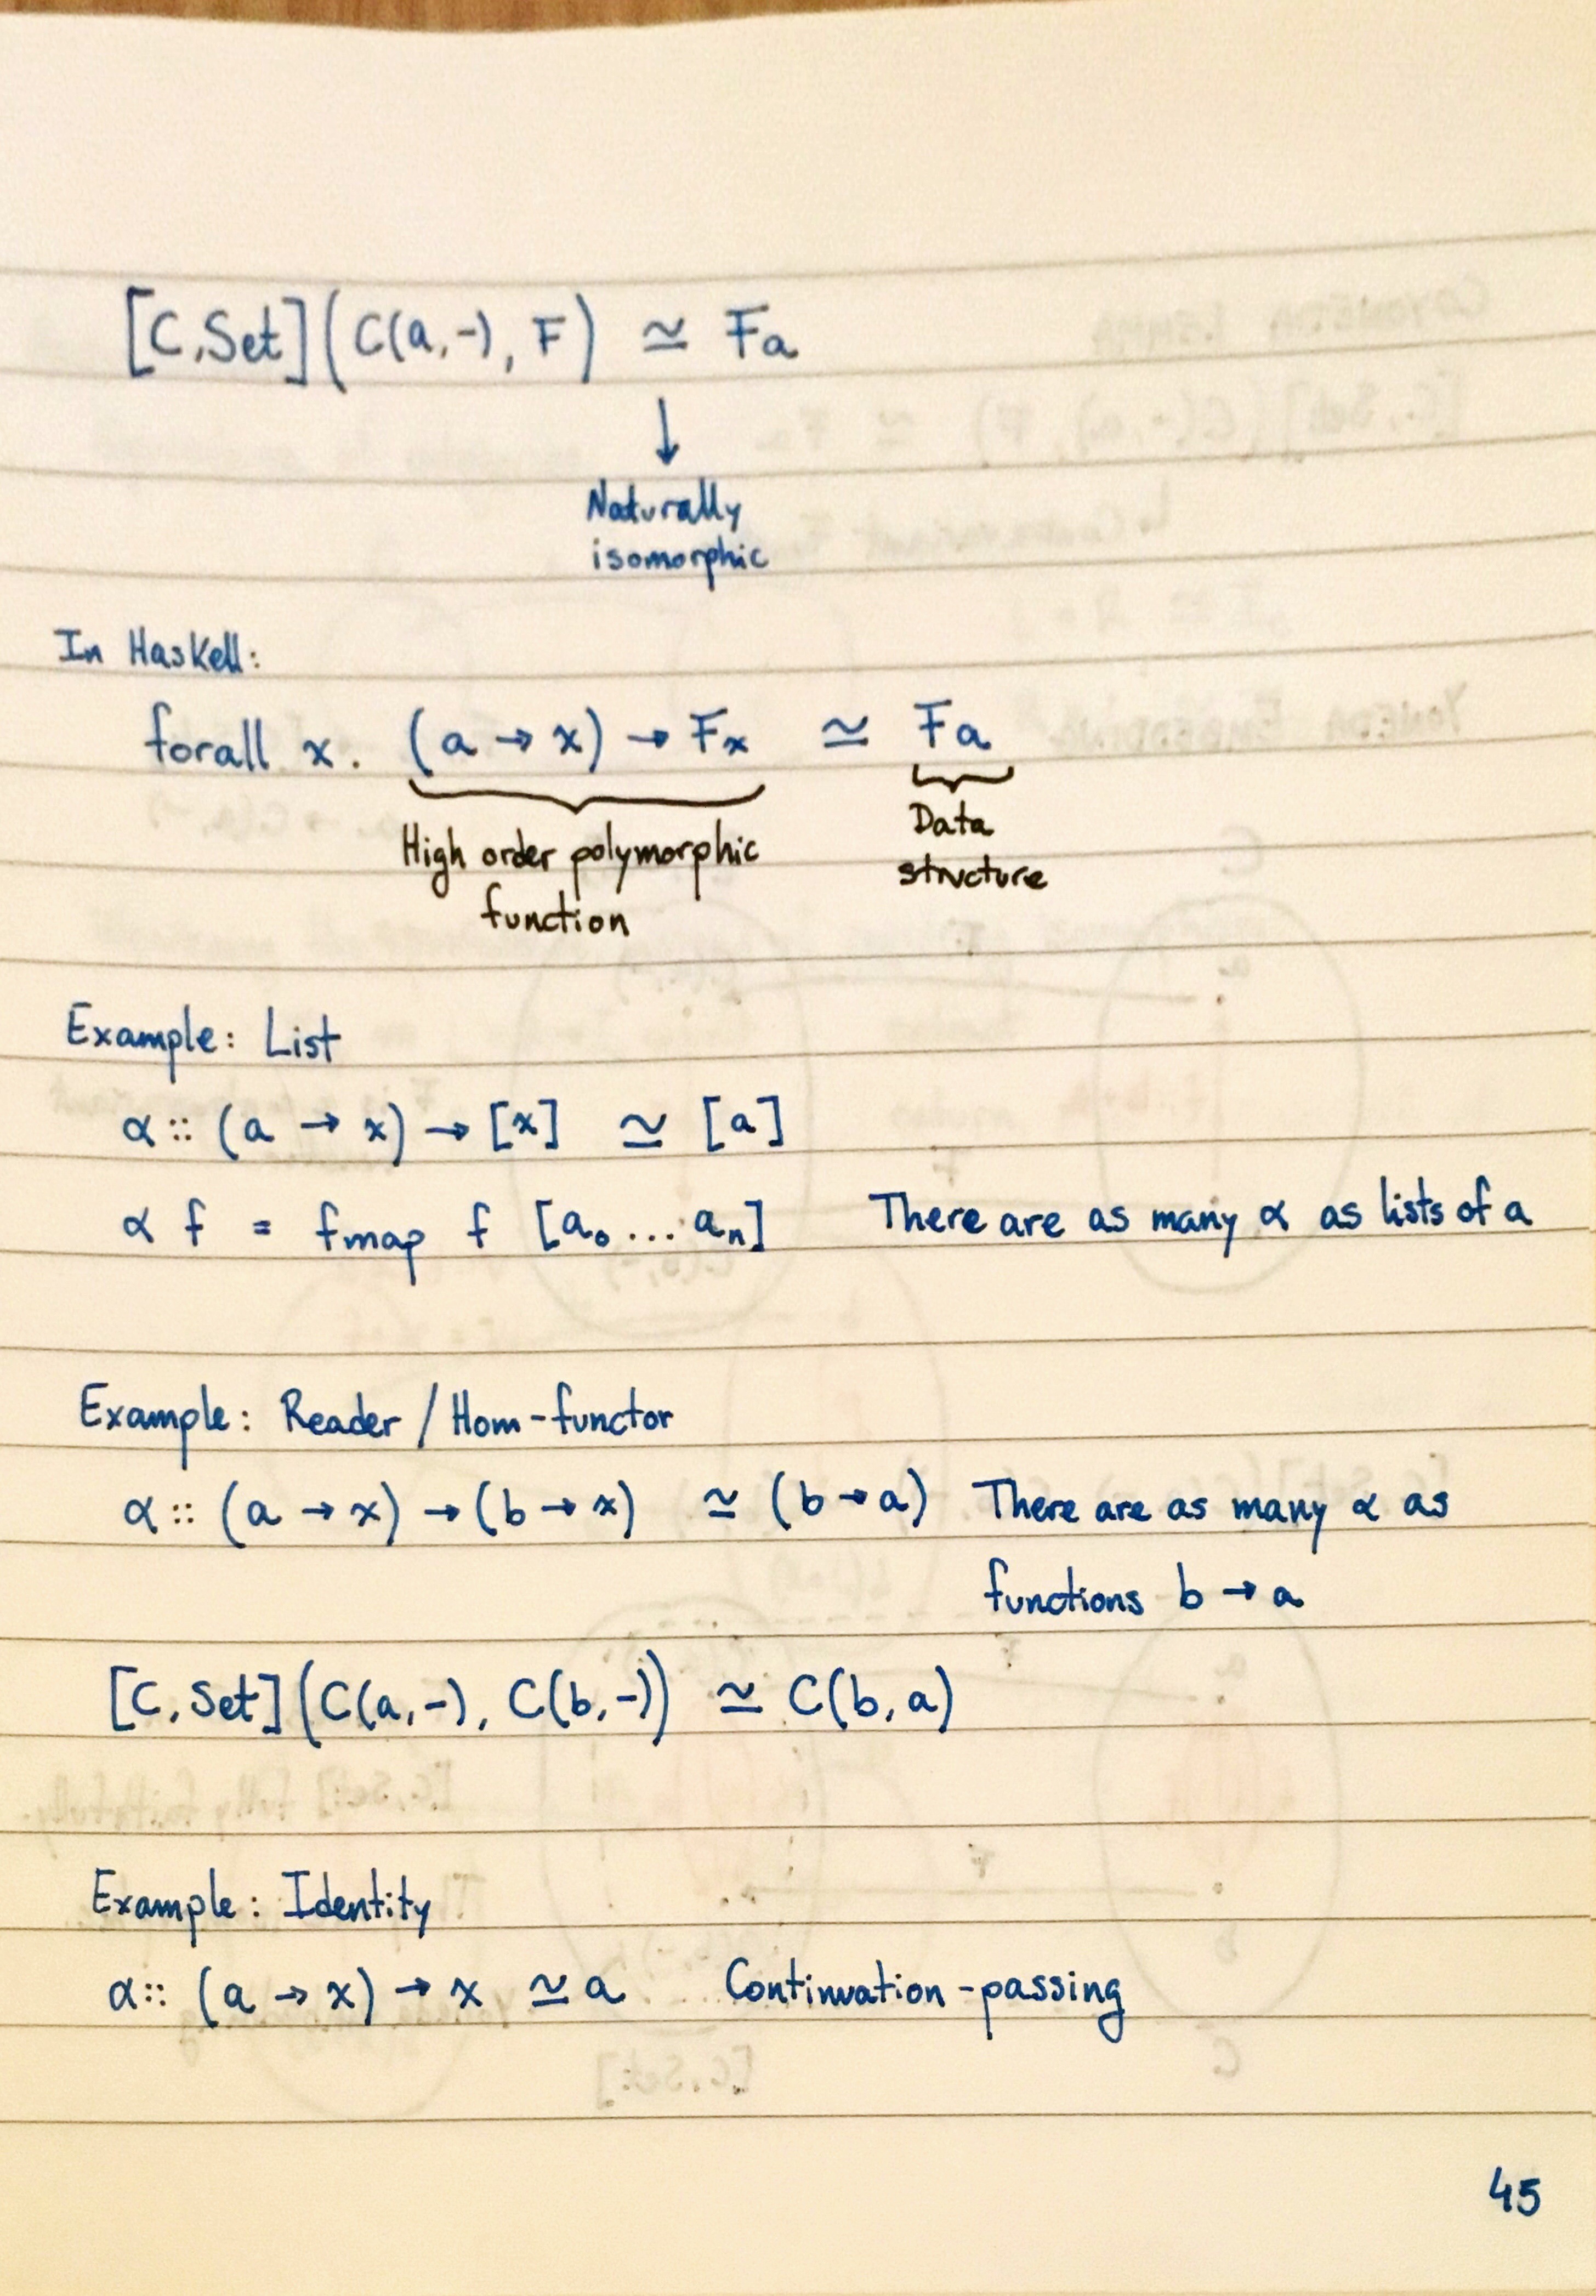 [C,Set](C(a,-), F) ≃ Fa
↓
Naturally
isomorphic
In Haskell:
forall x. (a → x) → Fx ≃ Fa
High order polymorphic
function
Data
structure
Example: List
α :: (a → x) → [x] ≃ [a]
α f = fmap f [a₀ ... aₙ] There are as many α as lists of a
Example: Reader / Hom-functor
α :: (a → x) → (b → x) ≃ (b → a) There are as many α as
functions b → a
[C,Set](C(a,-), C(b,-)) ≃ C(b,a)
Example: Identity
α :: (a → x) → x ≃ a Continuation-passing
45